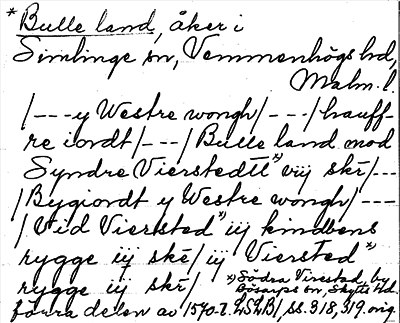 * Bulle land, åker i
Simlinge sn, Vemmenhögs hd,
Malm. l.
/---y Westre wongh/---/hauff-
re iordt/---/Bulle land mod
Syndre Vierstedtt*) vij skr/---
/Bygiordt y Westre wongh/---
/Vid Viersted*) iij kindbens
rygge iij skr/ iij Viersted*)
rygge iij skr/ *) Södra Virestad, by
Bösarps sn, Skytts hd.
förra delen av 1570-t. LSLB/ ss. 318, 319. orig